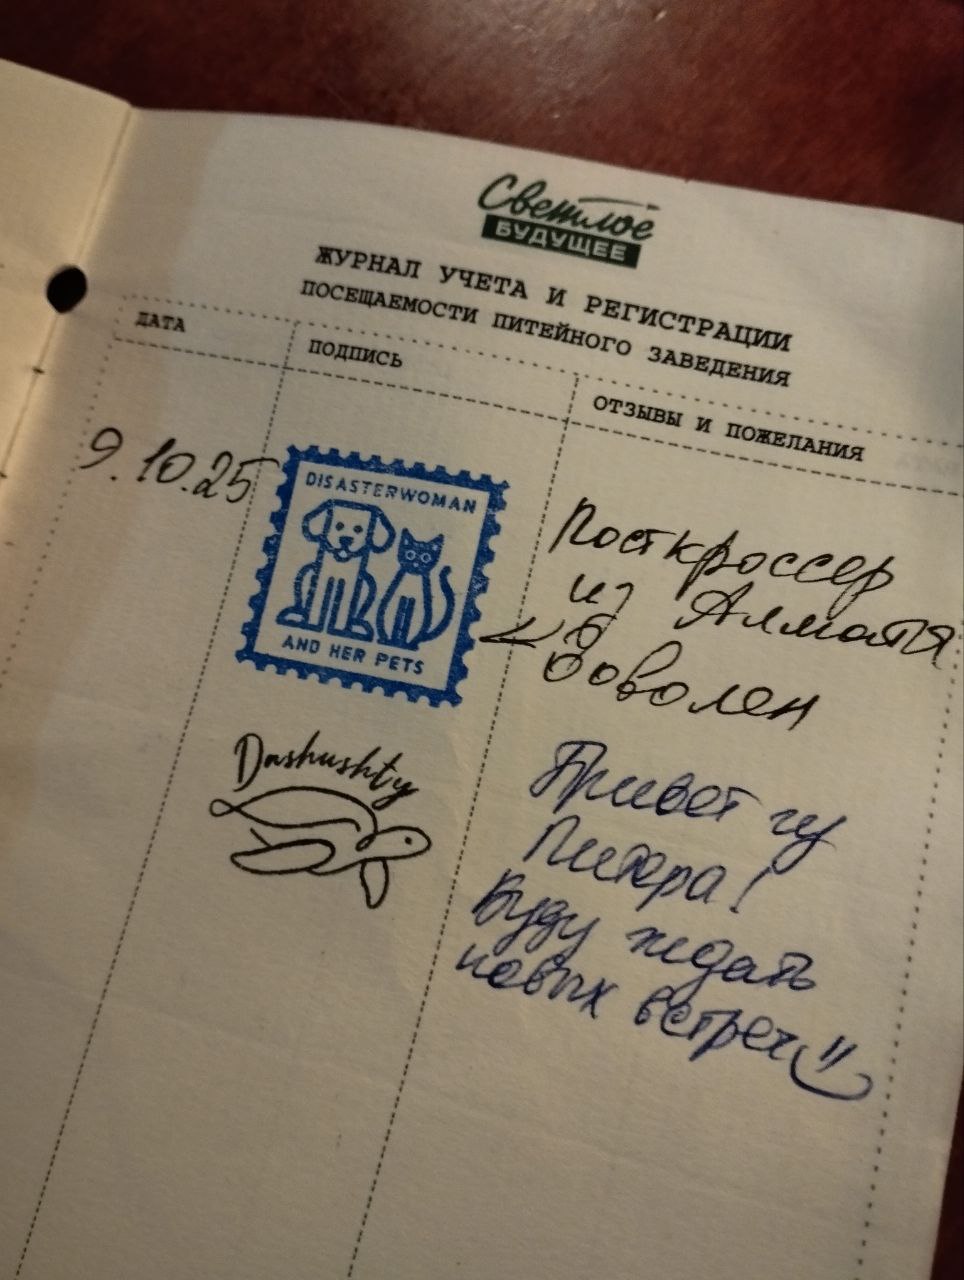 Светлое
БУДУЩЕЕ
ЖУРНАЛ УЧЕТА И РЕГИСТРАЦИИ
ПОСЕЩАЕМОСТИ ПИТЕЙНОГО ЗАВЕДЕНИЯ
ДАТА
ПОДПИСЬ
ОТЗЫВЫ И ПОЖЕЛАНИЯ
9.10.25
DISASTERWOMAN
AND HER PETS
Посткроссер
из Алматы
доволен
Dashushty
Привет из
Питера!
Буду ждать
новых встреч